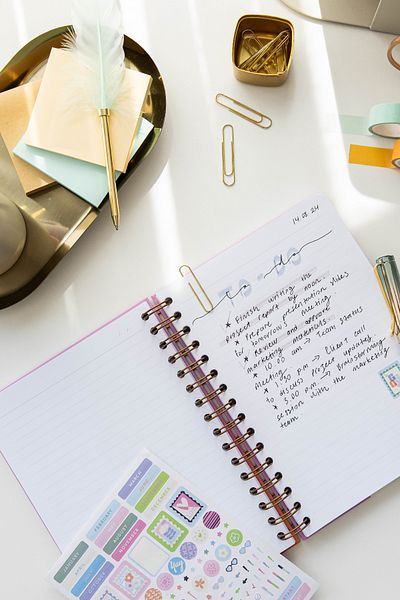 14.03.24
to do
★ Finish writing the
project report by noon.
★ Prepare presentation slides
for tomorrow's meeting
★ Review and approve
marketing materials.
★ 10.00 am → Team status
meeting
★ 1.30 p.m → Client call
to discuss project updates
★ 3.00 p.m. → Brainstorming
session with the marketing
team
JANUARY
FEBRUARY
MARCH
AUGUST
NOVEMBER
DECEMBER